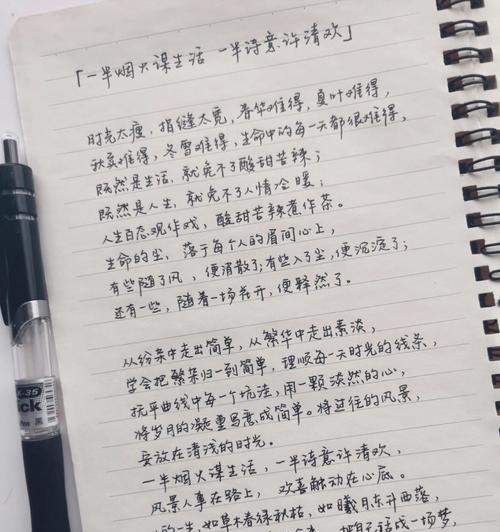 「一半烟火谋生活 一半诗意许清欢」
时光太瘦，指缝太宽，春华难得，夏叶难得，
秋爽难得，冬雪难得，生命中的每一天都很难得，
既然是生活，就免不了酸甜苦辣；
既然是人生，就免不了人情冷暖；
人生百态观作戏，酸甜苦辣煮作茶。
生命的尘，落于每个人的眉间心上，
有些随了风，便消散了；有些入了尘，便沉淀了；
还有一些，随着一场花开，便释然了。
从纷杂中走出简单，从繁华中走出素淡，
学会把繁杂归一到简单，理顺每一天时光的线条，
抚平曲线中每一个坑洼，用一颗淡然的心，
将岁月的凝重写意成简单。将过往的风景，
安放在清浅的时光。
一半烟火谋生活，一半诗意许清欢，
风景人事在路上，欢喜触动在心底。
的一生，如草木春绿秋枯，如曦月东升西落，
成一场梦
K-35